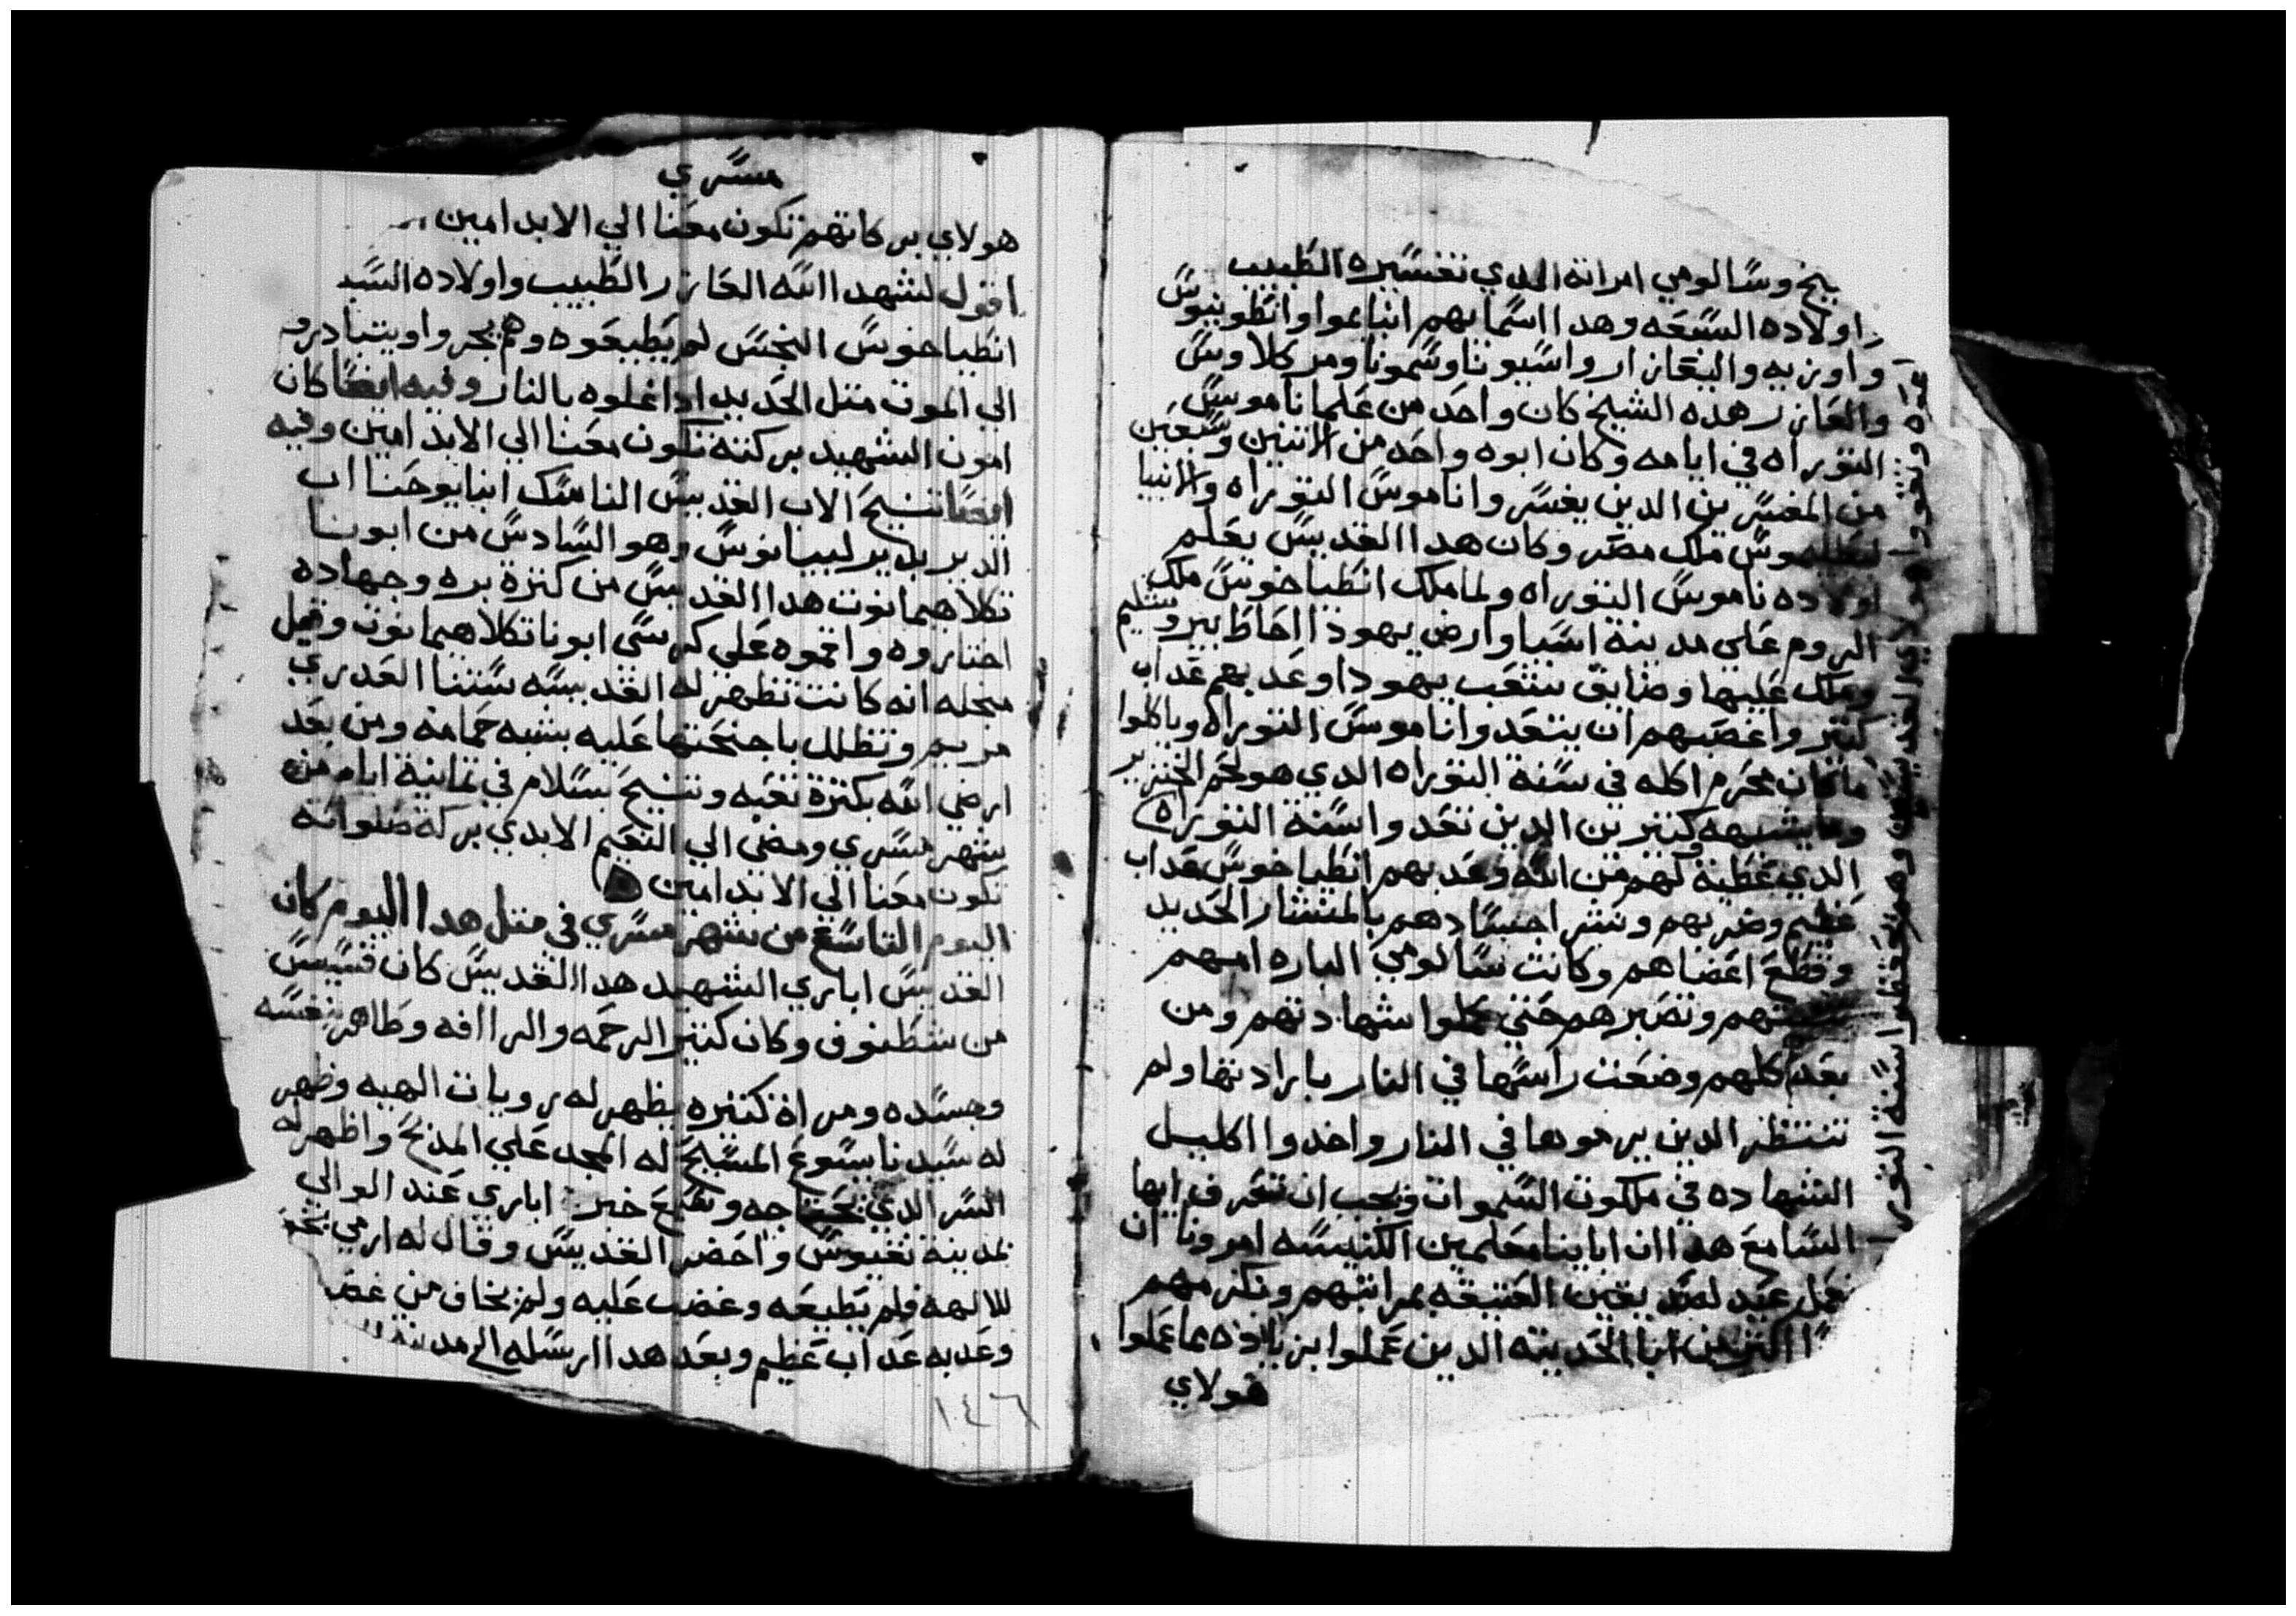 يخ وسالومي امراته الدي تفسيره الطبيب
واولاده السبعه وهدا اسمايهم ابنايموا وانطونيوس
واوزيه والبعازار واسيونا وسمونا ومركلاوس
والعازر هده الشيخ كان واحد من علما ناموس
التوراه في ايامه وكان ابوه واحد من الاتنين وسبعين
من المفسرين الدين يفسروا ناموس التوراه والانبيا
لبطليموس ملك مصر وكان هدا القديس يعلم
اولاده ناموس التوراه ولما ملك انطياخوس ملك
الروم علي مدينة اسيا وارض يهودا احاط بيروشليم
وملك عليها وضايق شعب يهودا وعدبهم عداب
كتير واغصبهم ان يتعدوا ناموس التوراه وياكلوا
ما كان محرم اكله في سنة التوراه الدي هو لحم الخنزير
وما يشبهه وكتيرين الدين تعدوا سنة التوراه
الدي عطية لهم من الله وعدبهم انطياخوس عداب
عظيم وضربهم ونشر اجسادهم بالمنشار الحديد
وقطع اعضاهم وكانت سالومي الباره امهم
تتبتهم وتصبرهم حتي كملوا شهادتهم ومن
بعد كلهم وضعت راسها في النار بارادتها ولم
تنتظر الدين يرموها في النار واخدوا اكليل
الشهاده في ملكوت السموات ويجب ان تعرف ايها
السامع هدا ان اباينا معلمين الكنيسه امرونا ان
نعمل عيد لصديقين العتيقه بمراتبهم ونكرمهم
اكتر من ابا الحديته الدين عملوا بزياده عما عملوا
هولاي
هولاي القديسين وهم يحفظوا سنة التوراه
مسري
هولاي بركاتهم تكون معنا الي الابد امين
اقول لشهد الله العازر الطبيب واولاده السبعه
انطياخوس النجس لم يطيعوه وهم يجروا ويتبادروا
الي الموت متل الحديد ادا غلوه بالنار وفيه ايضا كان
امون الشهيد بركته تكون معنا الي الابد امين وفيه
ايضا تنيح الاب القديس الناسك انبا يوحنا اب
الدير بدير لبيبانوس وهو السادس من ابونا
تكلاهيمانوت هدا القديس من كترة بره وجهاده
اختاروه واقموه علي كرسي ابونا تكلاهيمانوت وقيل
من‌جله انه كانت تظهر له القديسه ستنا العدري
مريم وتظلل باجنحتها عليه بشبه حمامه ومن بعد
ارضي الله بكترة تعبه وتنيح بسلام في تمانية ايام من
شهر مسري ومضي الي النعيم الابدي بركة صلواته
تكون معنا الي الابد امين
اليوم التاسع من شهر مسري في متل هدا اليوم كان
القديس اباري الشهيد هدا القديس كان قسيس
من شطنوف وكان كتير الرحمه والراافه وطاهر نفسه
وجسده ومراة كتيره يظهر له رويات الهيه وظهر
له سيدنا يسوع المسيح له المجد علي المدبح واظهر له
السر الدي يحتاجه وشيع خبر اباري عند الوالي
بمدينة نقيوس واحضر القديس وقال له ارمي بخور
للالهه فلم يطيعه وغضب عليه ولم يخاف من غضبه
وعدبه عداب عظيم وبعد هدا ارسله الي مدينة
١٤٦